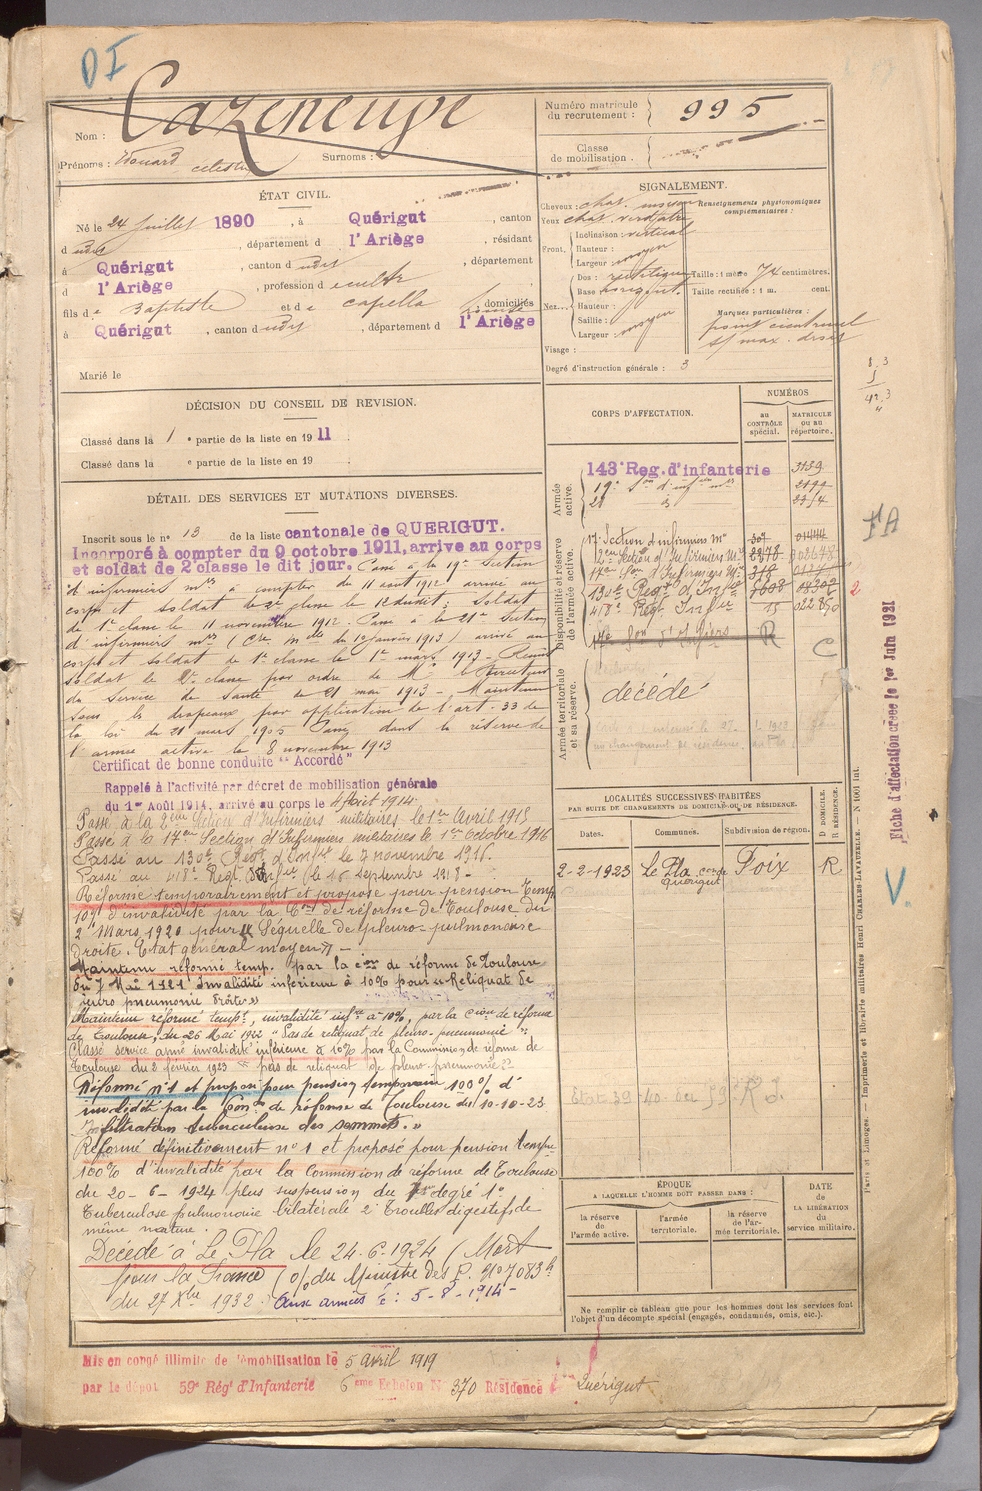 DI
Nom : Cazeneuve
Prénoms : Edouard Célestin Surnoms :
Numéro matricule du recrutement : 995
Classe de mobilisation .
ÉTAT CIVIL.
Né le 24 Juillet 1890, à Quérigut, canton
d udit, département d l'Ariège, résidant
à Quérigut, canton d udit, département
d l'Ariège, profession d
fils d e Baptiste et d e Capella domiciliés
à Quérigut, canton d udit, département d l'Ariège
Marié le
SIGNALEMENT.
Cheveux : chat. moyen
Yeux chat. verdâtre
Front. Inclinaison : vertical
Hauteur : moyen
Largeur : moyen
Nez. Dos : rectiligne
Base horizont.
Hauteur :
Saillie :
Largeur : moyen
Visage :
Degré d'instruction générale : 3
Renseignements physionomiques complémentaires :
Taille : 1 mètre 74 centimètres.
Taille rectifiée : 1 m. cent.
Marques particulières :
DÉCISION DU CONSEIL DE REVISION.
Classé dans la 1 e partie de la liste en 1911 .
Classé dans la e partie de la liste en 19 .
DÉTAIL DES SERVICES ET MUTATIONS DIVERSES.
Inscrit sous le n° 13 de la liste cantonale de QUERIGUT.
Incorporé à compter du 9 octobre 1911, arrive au corps
et soldat de 2e classe le dit jour. Passé à la 19e Section
d'infirmiers mres à compter du 11 août 1912 arrivé au
corps et soldat de 2e classe le 12 dudit; Soldat
de 1e classe le 11 novembre 1912. Passé à la 21e Section
d'infirmiers mres (Cre mlle du 12 janvier 1913) arrivé au
corps et soldat de 1e classe le 1er mars 1913 - Remis
soldat de 2e classe par ordre de Mr le Directeur
du Service de Santé le 21 mai 1913 - Maintenu
sous les drapeaux par application de l'art. 33 de
la loi du 21 mars 1905 Passé dans la réserve de
l'armée active le 8 novembre 1913
Certificat de bonne conduite "Accordé"
Rappelé à l'activité par décret de mobilisation générale
du 1er Août 1914, arrivé au corps le 4 Août 1914
Passé à la 2eme Section d'Infirmiers militaires le 1er Avril 1915
Passé à la 17eme Section d'Infirmiers militaires le 1er Octobre 1916
Passé au 130e Régt d'Infie le 7 novembre 1916.
Passé au 418e Régt Infie le 16 Septembre 1918 -
Réformé temporairement et proposé pour pension temp
10% d'invalidité par la Con de réforme de Toulouse du
2 Mars 1920 pour "Séquelle de pleuro-pulmonaire
droite. Etat général moyen" -
Maintenu réformé temp. par la con de réforme de Toulouse
du 7 Mai 1921 Invalidité inférieure à 10% pour "Reliquat de
pleuro pneumonie droite"
Maintenu réformé tempe, invalidité infre à 10%, par la Cion de réforme
de Toulouse, du 26 Mai 1922 "Pas de reliquat de pleuro-pneumonie"
Classé service armé invalidité inférieure à 10% par la Commission de réforme de
Toulouse du 3 février 1923 "pas de reliquat de pleuro pneumonie"
Réformé n°1 et proposé pour pension temporaire 100% d'
invalidité par la Con de réforme de Toulouse du 10-10-23
Infiltration tuberculeuse des sommets."
Réformé définitivement n°1 et proposé pour pension tempre
100% d'invalidité par la Commission de réforme de Toulouse
du 20-6-1924 plus suspension du degré 1°
Tuberculose pulmonaire bilatérale 2° Troubles digestifs de
même nature.
Décédé à Le Pla le 24.6.1924 (Mort
pour la France) du Ministre des P. N° 7083
du 27 Xbre 1932. Aux armées le : 5-8-1914-
CORPS D'AFFECTATION.
NUMÉROS
au CONTRÔLE spécial.
MATRICULE ou au répertoire.
Armée active.
143e Reg. d'infanterie 3159
19e Son d'infiers mres 2199
21 d° 2314
Disponibilité et réserve de l'armée active.
17e Section d'infirmiers Mres
2eme Section d'Infirmiers Mres 2278
17eme Son d'Infirmiers Mres 318
130e Régt d'Infie 08302
418e Régt Infie 15 022850
R
Armée territoriale et sa réserve.
décédé
LOCALITÉS SUCCESSIVES HABITÉES
PAR SUITE DE CHANGEMENTS DE DOMICILE OU DE RÉSIDENCE.
Dates. Communes. Subdivision de région. D DOMICILE. R RÉSIDENCE.
2-2-1923 Le Pla con de Quérigut Foix R
ÉPOQUE
A LAQUELLE L'HOMME DOIT PASSER DANS :
la réserve de l'armée active.
l'armée territoriale.
la réserve de l'armée territoriale.
DATE de LA LIBÉRATION du service militaire.
Ne remplir ce tableau que pour les hommes dont les services font
l'objet d'un décompte spécial (engagés, condamnés, omis, etc.).
Mis en congé illimité de démobilisation le 5 avril 1919
par le dépôt 59e Rég' d'Infanterie 6eme Echelon N° 370 Résidence Quérigut
Fiche d'affectation créée le 1er Juin 1921
V.
FA
C
2
Paris et Limoges. — Imprimerie et librairie militaires Henri CHARLES-LAVAUZELLE. — N° 1001 int.